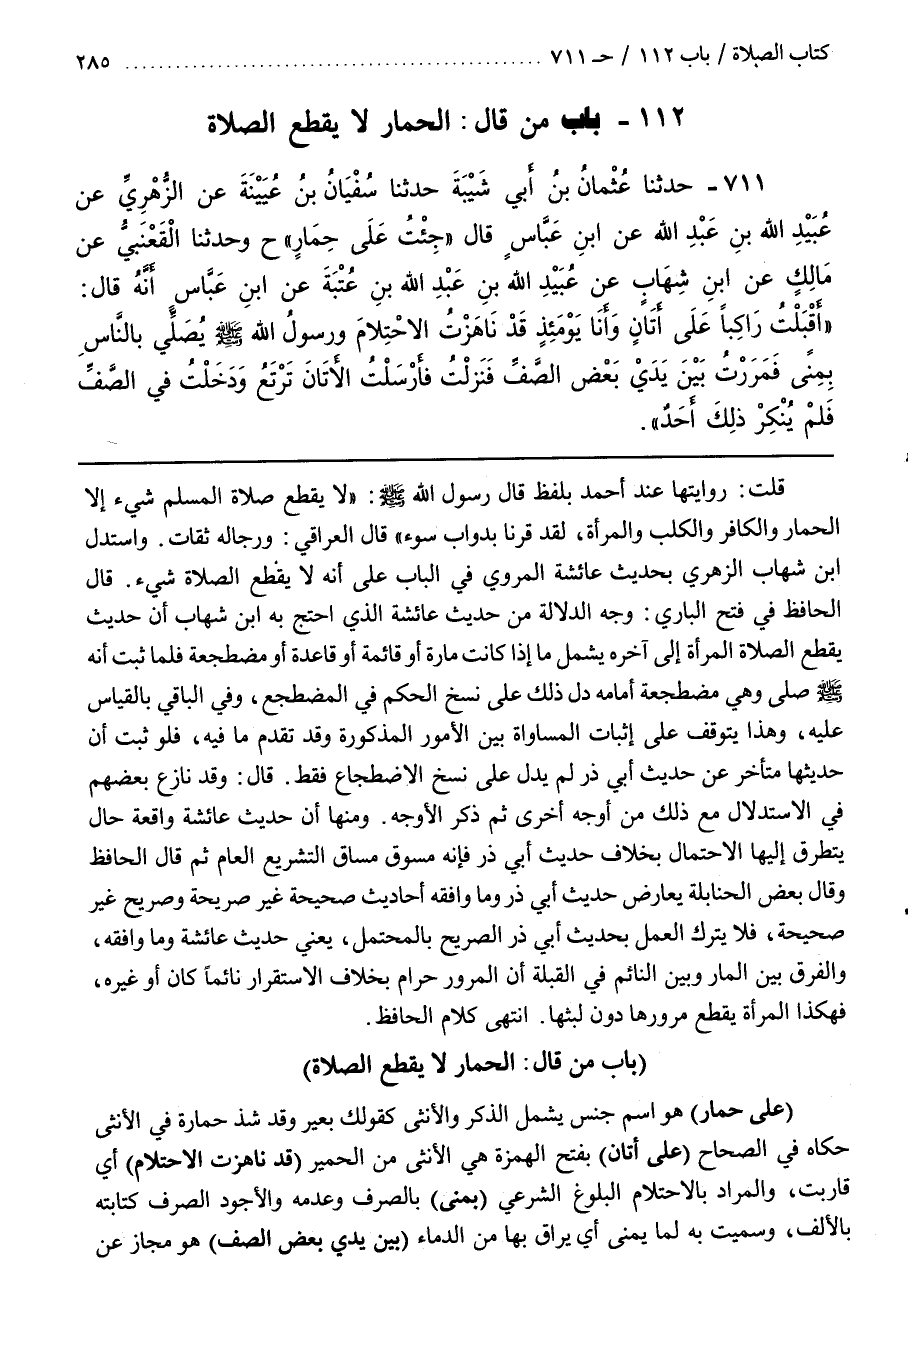 كتاب الصلاة / باب ١١٢ / حـ ٧١١ ................................................ ٢٨٥
١١٢ - باب من قال: الحمار لا يقطع الصلاة
٧١١ - حدثنا عُثْمانُ بنُ أَبي شَيْبَةَ حدثنا سُفْيَانُ بنُ عُيَيْنَةَ عن الزُّهْرِيِّ عن
عُبَيْدِ الله بنِ عَبْدِ الله عن ابنِ عَبَّاسٍ قال «جِئْتُ عَلَى حِمَارٍ» ح وحدثنا الْقَعْنَبيُّ عن
مَالِكٍ عن ابنِ شِهَابٍ عن عُبَيْدِ الله بنِ عَبْدِ الله بنِ عُتْبَةَ عن ابنِ عَبَّاسٍ أَنَّهُ قال:
«أَقْبَلْتُ رَاكِباً عَلَى أَتَانٍ وَأَنَا يَوْمَئِذٍ قَدْ نَاهَزْتُ الاحْتِلامَ ورسولُ الله ﷺ يُصَلِّي بالنَّاسِ
بِمِنًى فَمَرَرْتُ بَيْنَ يَدَيْ بَعْضِ الصَّفِّ فَنَزلْتُ فأَرْسَلْتُ الأتَانَ تَرْتَعُ وَدَخَلْتُ في الصَّفِّ
فَلمْ يُنْكِرْ ذلِكَ أَحَدٌ».
قلت: روايتها عند أحمد بلفظ قال رسول الله ﷺ: «لا يقطع صلاة المسلم شيء إلا
الحمار والكافر والكلب والمرأة، لقد قرنا بدواب سوء» قال العراقي: ورجاله ثقات. واستدل
ابن شهاب الزهري بحديث عائشة المروي في الباب على أنه لا يقطع الصلاة شيء. قال
الحافظ في فتح الباري: وجه الدلالة من حديث عائشة الذي احتج به ابن شهاب أن حديث
يقطع الصلاة المرأة إلى آخره يشمل ما إذا كانت مارة أو قائمة أو قاعدة أو مضطجعة فلما ثبت أنه
ﷺ صلى وهي مضطجعة أمامه دل ذلك على نسخ الحكم في المضطجع، وفي الباقي بالقياس
عليه، وهذا يتوقف على إثبات المساواة بين الأمور المذكورة وقد تقدم ما فيه، فلو ثبت أن
حديثها متأخر عن حديث أبي ذر لم يدل على نسخ الاضطجاع فقط. قال: وقد نازع بعضهم
في الاستدلال مع ذلك من أوجه أخرى ثم ذكر الأوجه. ومنها أن حديث عائشة واقعة حال
يتطرق إليها الاحتمال بخلاف حديث أبي ذر فإنه مسوق مساق التشريع العام ثم قال الحافظ
وقال بعض الحنابلة يعارض حديث أبي ذر وما وافقه أحاديث صحيحة غير صريحة وصريح غير
صحيحة، فلا يترك العمل بحديث أبي ذر الصريح بالمحتمل، يعني حديث عائشة وما وافقه،
والفرق بين المار وبين النائم في القبلة أن المرور حرام بخلاف الاستقرار نائماً كان أو غيره،
فهكذا المرأة يقطع مرورها دون لبثها. انتهى كلام الحافظ.
(باب من قال: الحمار لا يقطع الصلاة)
(على حمار) هو اسم جنس يشمل الذكر والأنثى كقولك بعير وقد شذ حمارة في الأنثى
حكاه في الصحاح (على أتان) بفتح الهمزة هي الأنثى من الحمير (قد ناهزت الاحتلام) أي
قاربت، والمراد بالاحتلام البلوغ الشرعي (بمنى) بالصرف وعدمه والأجود الصرف كتابته
بالألف، وسميت به لما يمنى أي يراق بها من الدماء (بين يدي بعض الصف) هو مجاز عن